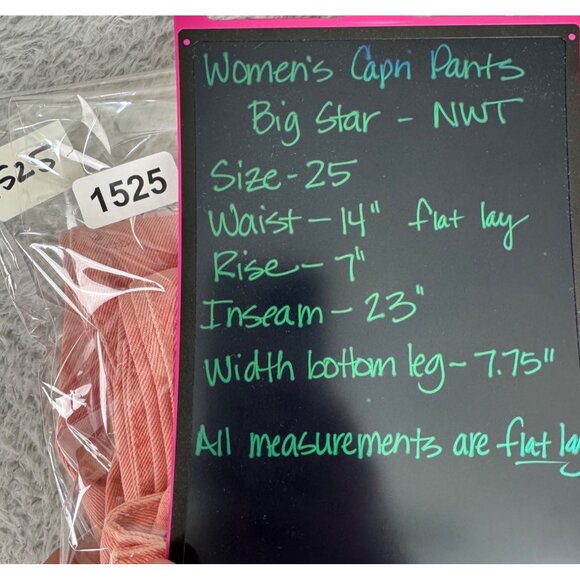 Women's Capri Pants
Big Star - NWT
Size - 25
Waist - 14" flat lay
Rise - 7"
Inseam - 23"
Width bottom leg - 7.75"
All measurements are flat lay
1525
1525